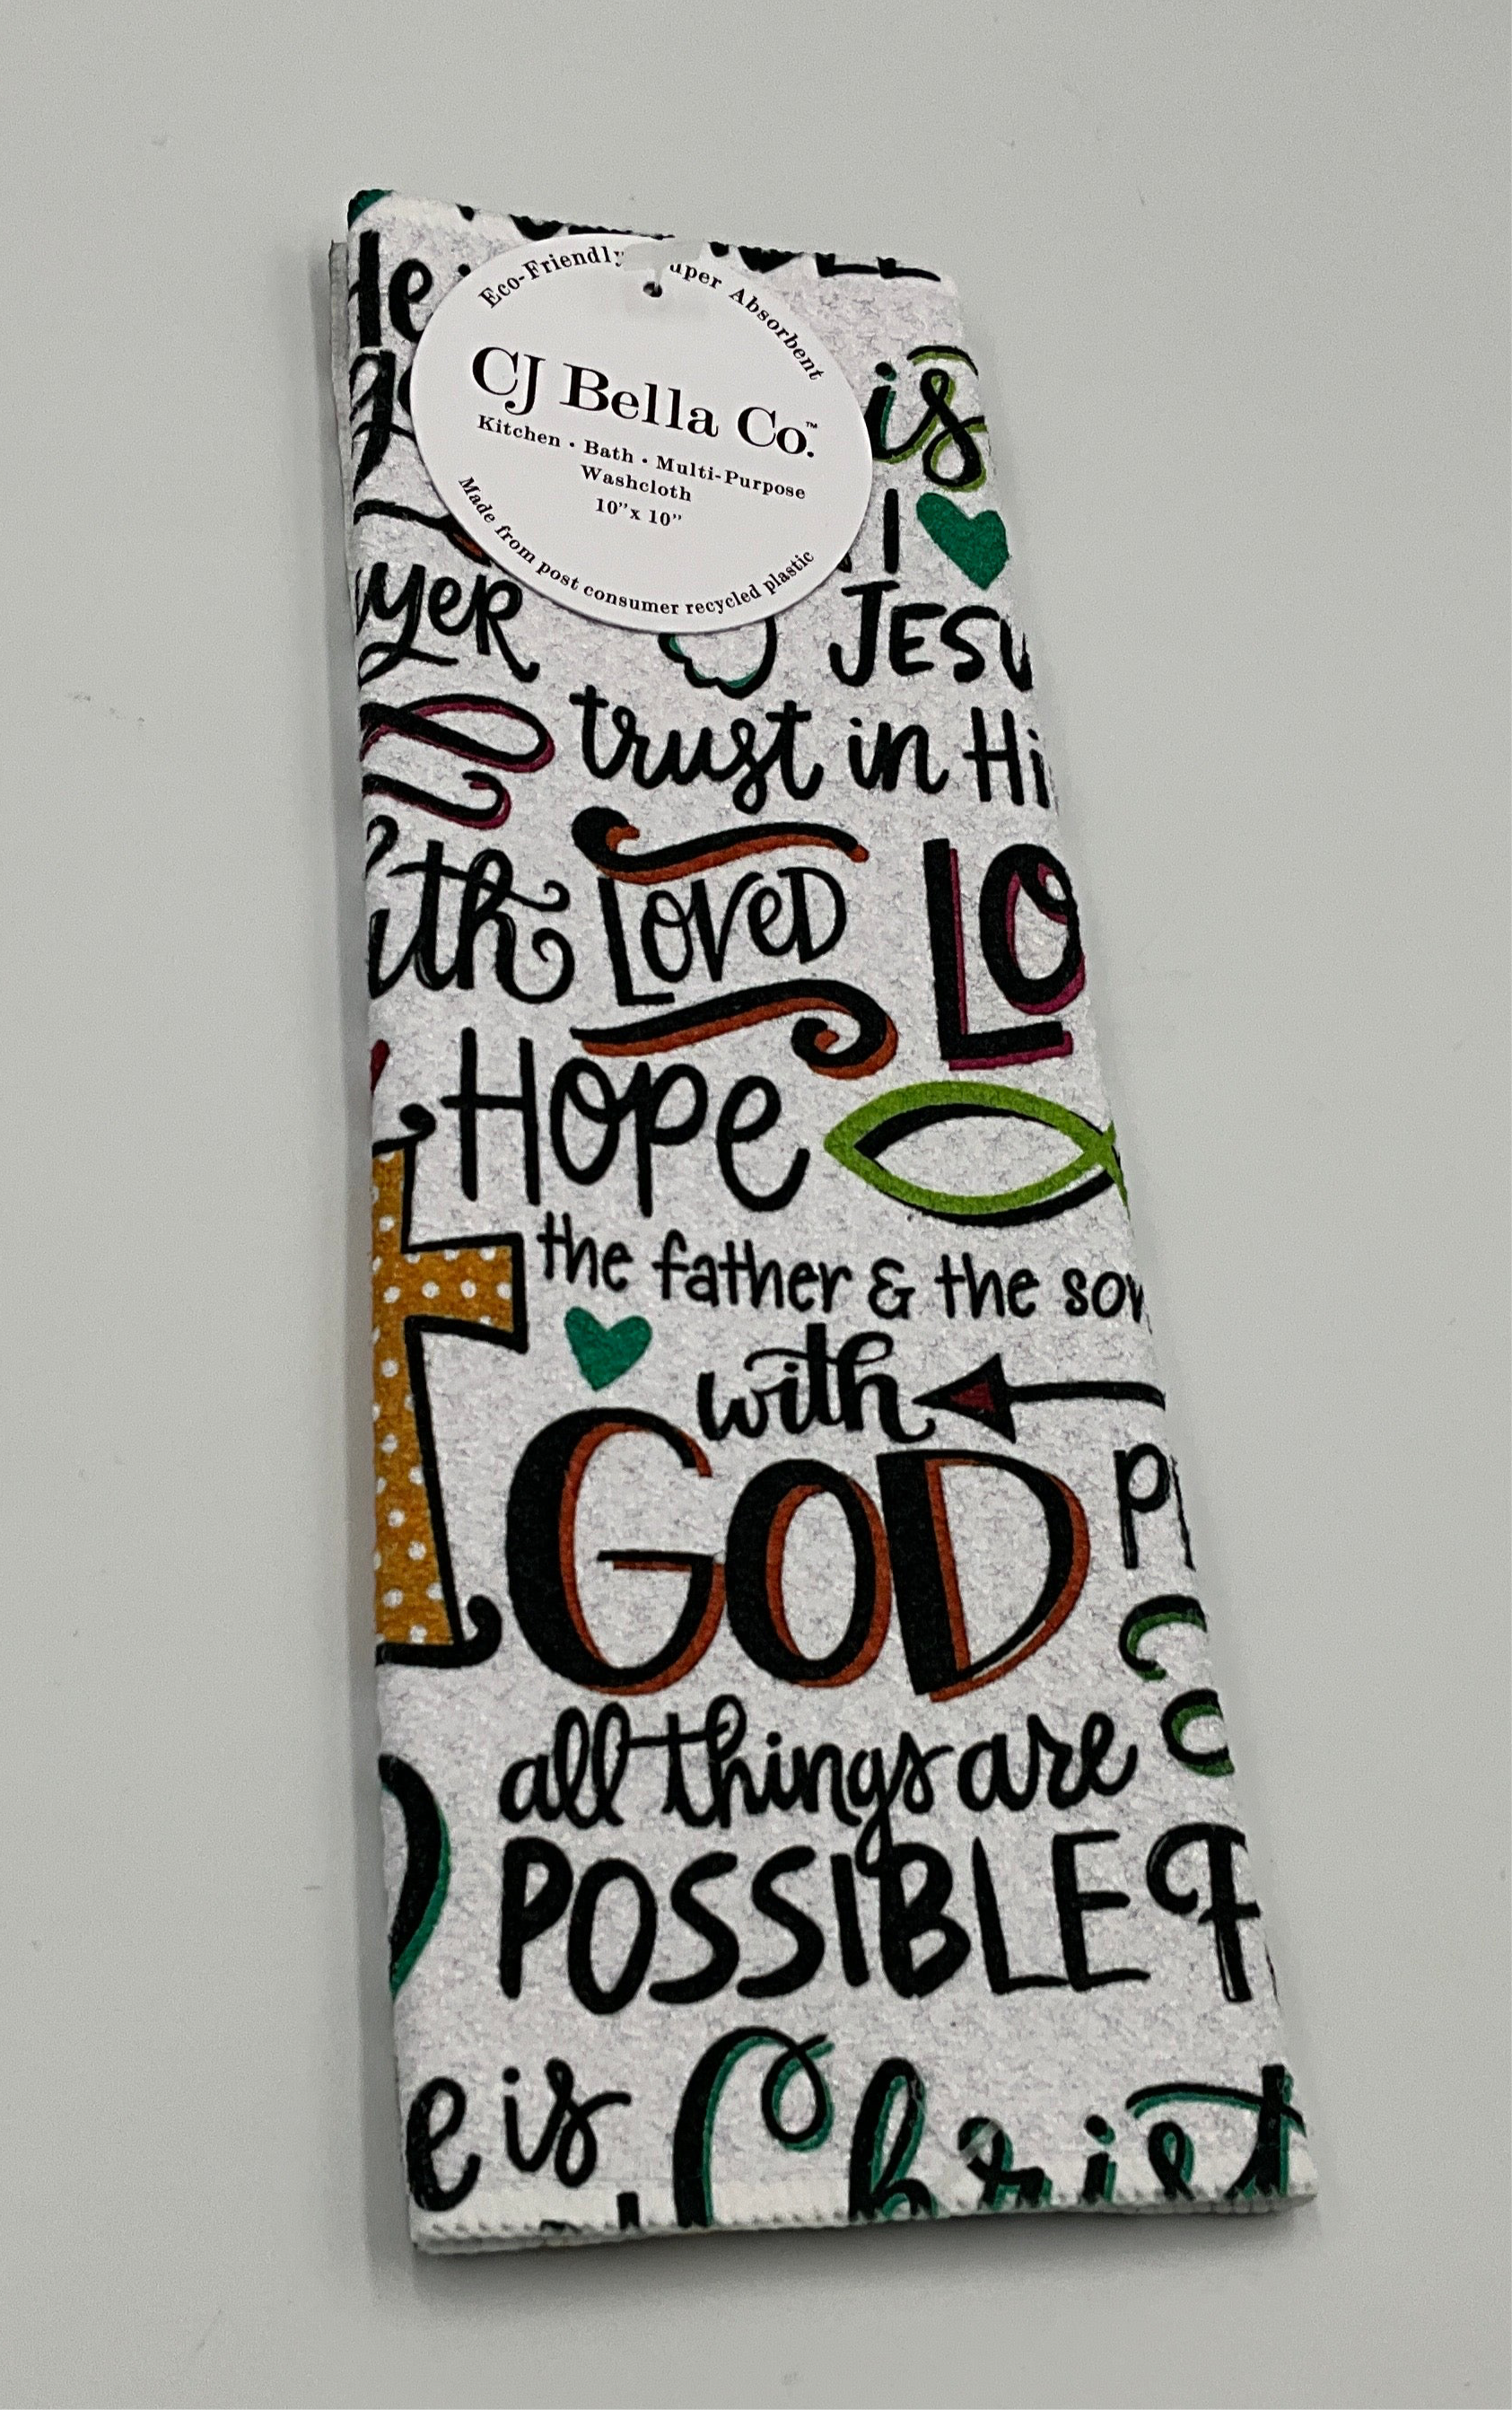 Eco-Friendly
Absorbent
CJ Bella Co.™
Kitchen • Bath • Multi-Purpose
Washcloth
10”x 10”
Made from post consumer recycled plastic
is
I
JESU
trust in Hi
LOVED
LO
HOPE
the father & the son
with
GOD
all things are
POSSIBLE
e is Christ